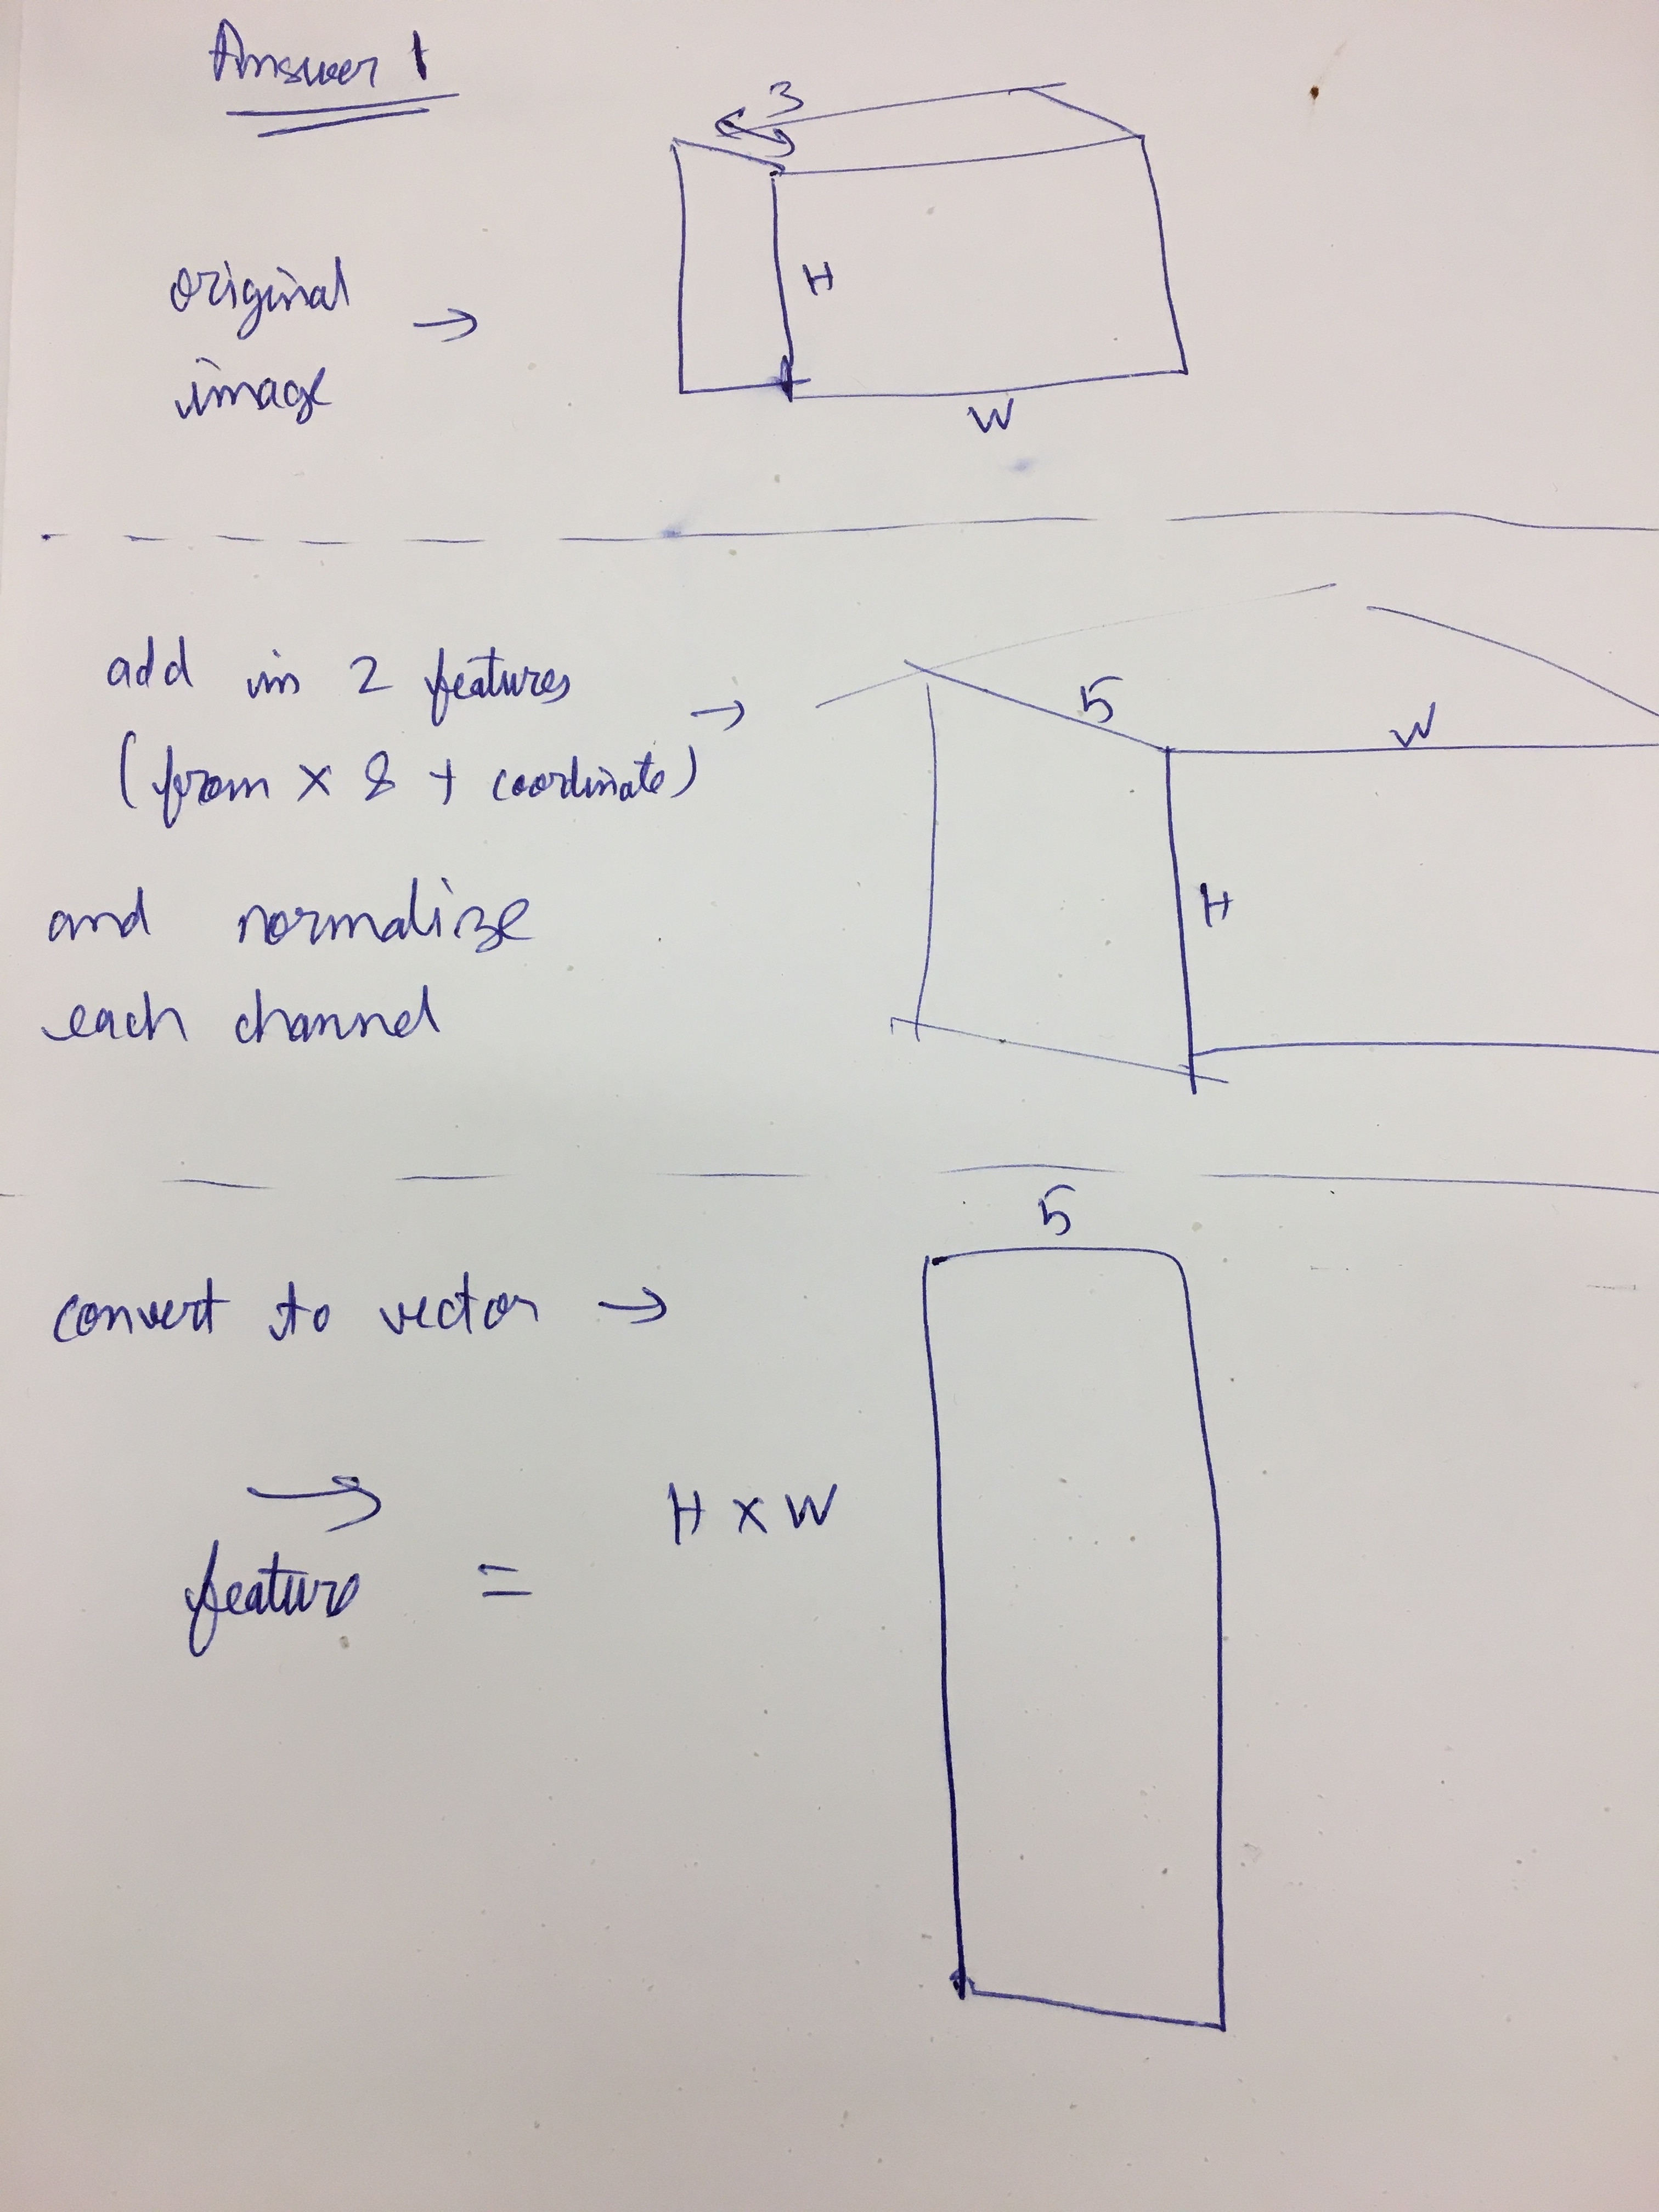 Answer 1
3
original
image
→
H
W
add in 2 features
(from x & y coordinate)
→
5
W
and normalize
each channel
H
5
convert to vector →
H x W
feature =